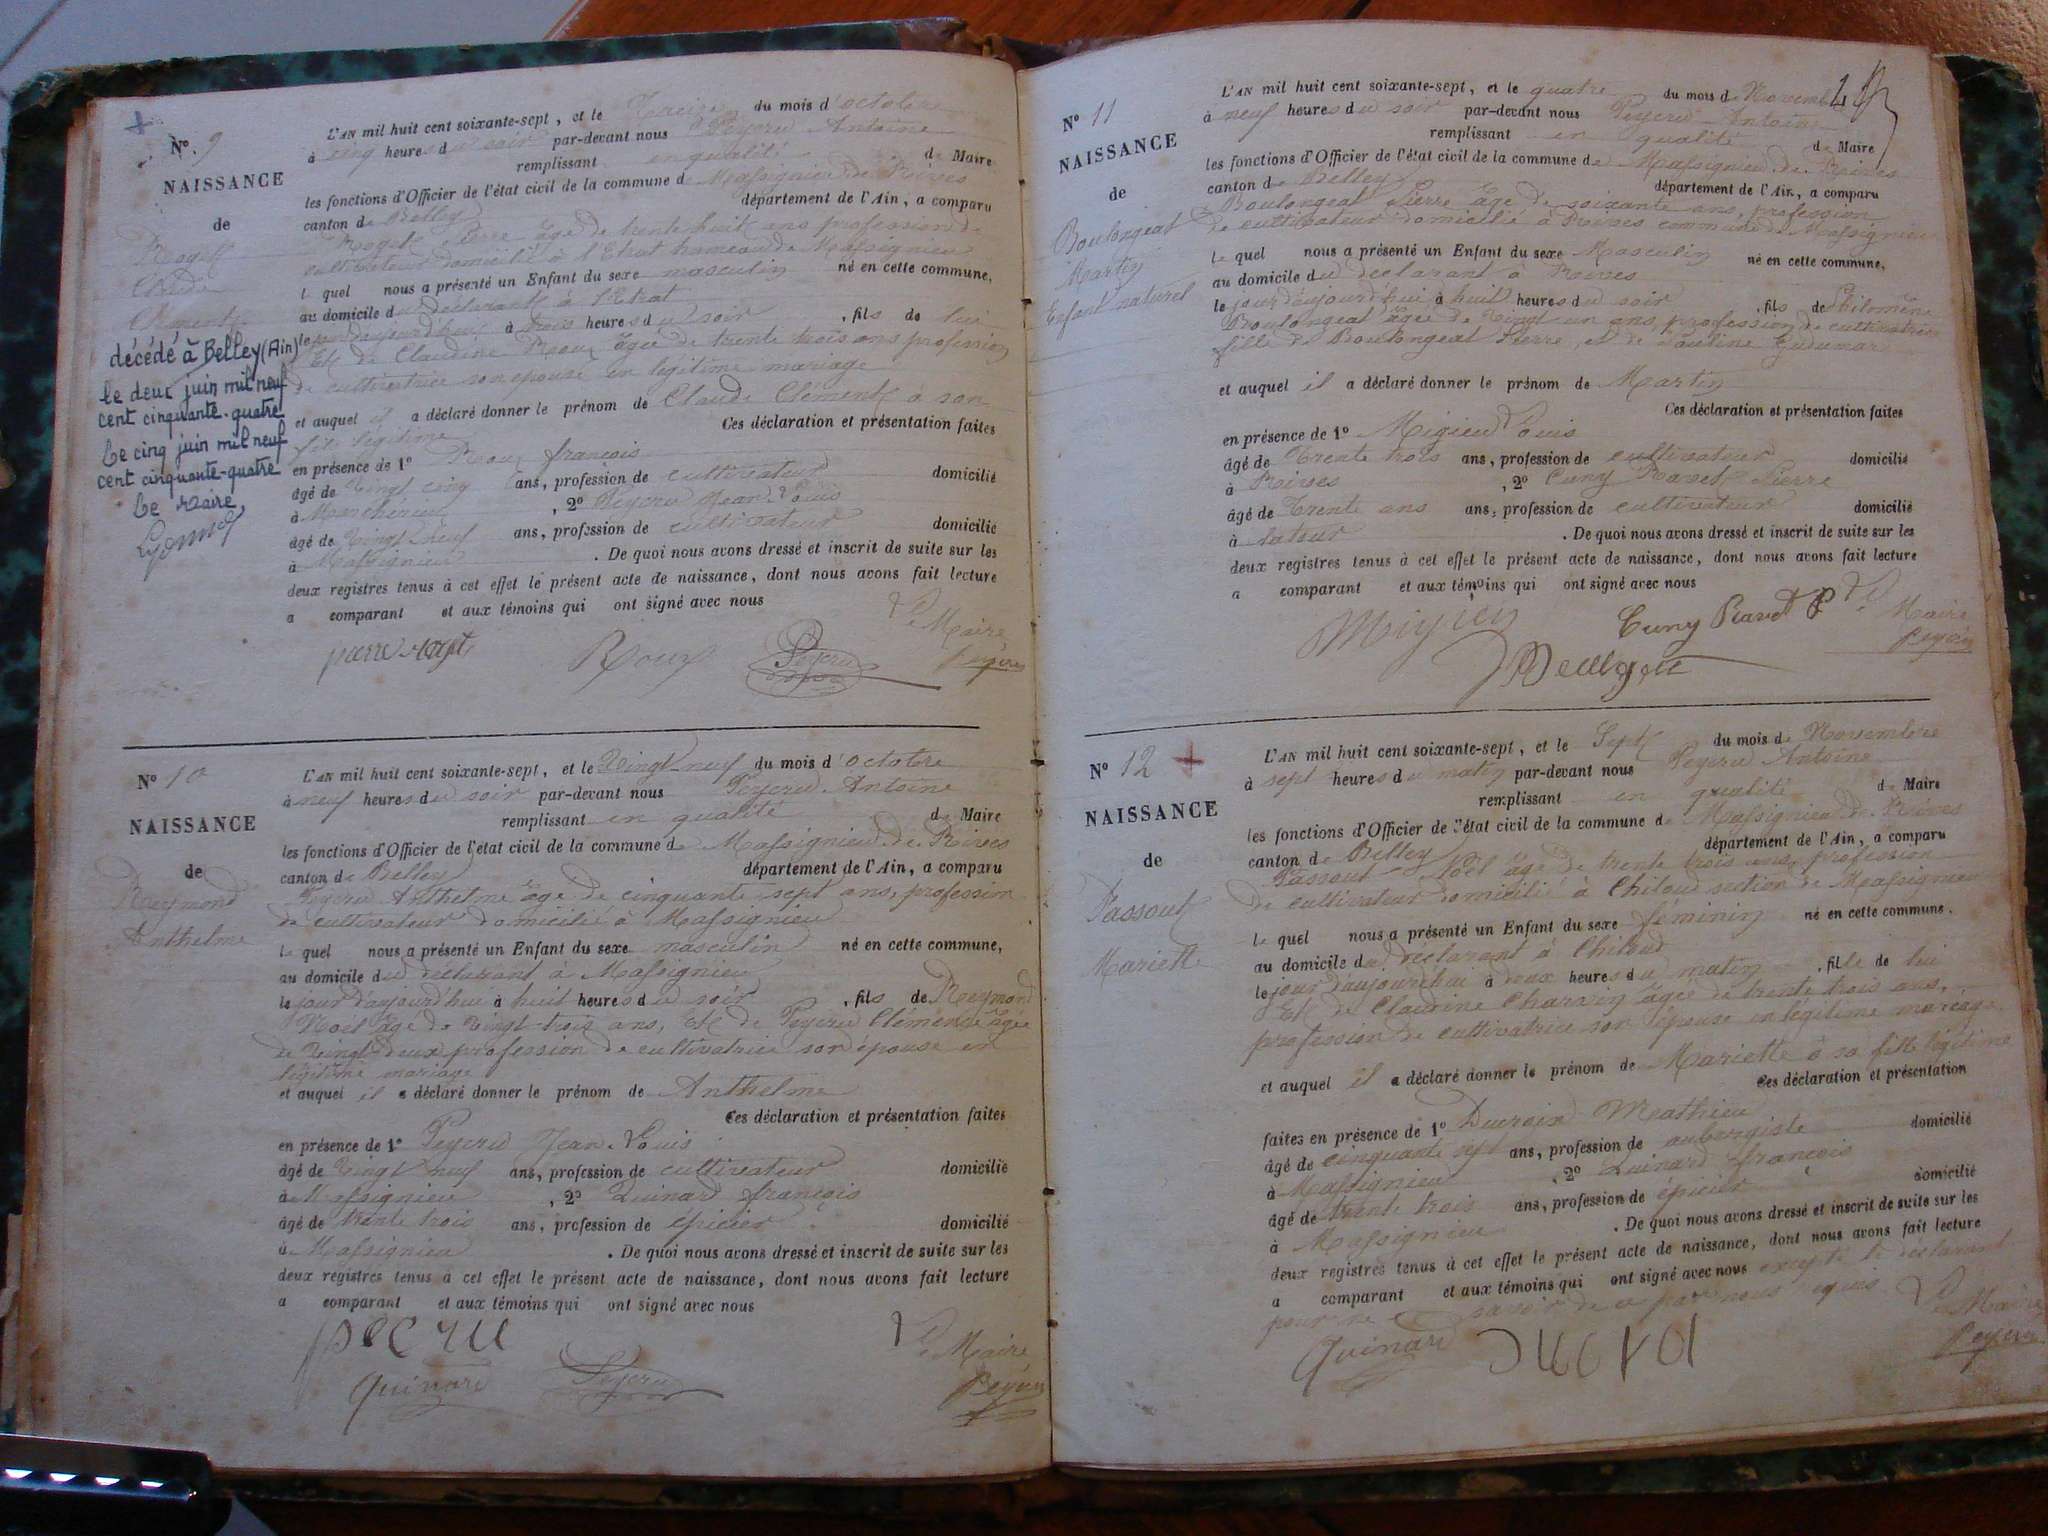 N°. 9
NAISSANCE
de
Claude
Clément
décédé à Belley (Ain)
le deux juin mil neuf
cent cinquante-quatre
Le cinq juin mil neuf
cent cinquante-quatre
Le Maire,
L'AN mil huit cent soixante-sept, et le Treize du mois d'octobre
à cinq heures du soir par-devant nous Peyeru Antoine
remplissant en qualité de Maire
les fonctions d'Officier de l'état civil de la commune de Massignieu de Rives
canton de Belley département de l'Ain, a comparu
Pierre âgé de trente huit ans profession de
cultivateur domicilié à l'Etrat hameau de Massignieu
le quel nous a présenté un Enfant du sexe masculin né en cette commune,
au domicile du déclarant à l'Etrat
le jour d'aujourd'hui à trois heures du soir, fils de lui
Et de Claudine Roux âgée de trente trois ans profession
de cultivatrice son épouse en légitime mariage
et auquel il a déclaré donner le prénom de Claude Clément a son
fils légitime Ces déclaration et présentation faites
en présence de 1° Roux françois
âgé de Vingt cinq ans, profession de cultivateur domicilié
à , 2° Peyeru Jean Louis
âgé de Vingt neuf ans, profession de cultivateur domicilié
à Massignieu . De quoi nous avons dressé et inscrit de suite sur les
deux registres tenus à cet effet le présent acte de naissance, dont nous avons fait lecture
a comparant et aux témoins qui ont signé avec nous
Le Maire
Roux Peyeru
N° 10
NAISSANCE
de
Reymond
Anthelme
L'AN mil huit cent soixante-sept, et le Vingt-neuf du mois d'octobre
à neuf heures du soir par-devant nous Peyeru Antoine
remplissant en qualité de Maire
les fonctions d'Officier de l'état civil de la commune de Massignieu de Rives
canton de Belley département de l'Ain, a comparu
Peyeru Anthelme âgé de cinquante sept ans, profession
de cultivateur domicilié à Massignieu
le quel nous a présenté un Enfant du sexe masculin né en cette commune,
au domicile du déclarant à Massignieu
le jour d'aujourd'hui à huit heures du soir, fils de Reymond
Noël âgé de Vingt trois ans, Et de Peyeru Clémence âgée
de Vingt-deux profession de cultivatrice son épouse en
légitime mariage
et auquel il a déclaré donner le prénom de Anthelme
Ces déclaration et présentation faites
en présence de 1° Peyeru Jean-Louis
âgé de Vingt neuf ans, profession de cultivateur domicilié
à Massignieu , 2° Quinard françois
âgé de trente trois ans, profession de épicier domicilié
à Massignieu . De quoi nous avons dressé et inscrit de suite sur les
deux registres tenus à cet effet le présent acte de naissance, dont nous avons fait lecture
a comparant et aux témoins qui ont signé avec nous
Le Maire
Quinard Peyeru
N° 11
NAISSANCE
de
Boulongeat
Martin
Enfant naturel
L'AN mil huit cent soixante-sept, et le quatre du mois de Novembre
à neuf heures du soir par-devant nous Peyeru Antoine
remplissant en qualité de Maire
les fonctions d'Officier de l'état civil de la commune de Massignieu de Rives
canton de Belley département de l'Ain, a comparu
Boulongeat Pierre âgé de soixante ans, profession
de cultivateur domicilié à Rives commune de Massignieu
le quel nous a présenté un Enfant du sexe Masculin né en cette commune,
au domicile du déclarant à Rives
le jour d'aujourd'hui à huit heures du soir, fils de Philomène
Boulongeat âgée de Vingt un ans, profession de cultivatrice
fille de Boulongeat Pierre, et de Pauline
et auquel il a déclaré donner le prénom de Martin
Ces déclaration et présentation faites
en présence de 1° Migieu Louis
âgé de Trente trois ans, profession de cultivateur domicilié
à Rives , 2° Cuny Ravet Pierre
âgé de Trente ans ans, profession de cultivateur domicilié
à latour . De quoi nous avons dressé et inscrit de suite sur les
deux registres tenus à cet effet le présent acte de naissance, dont nous avons fait lecture
a comparant et aux témoins qui ont signé avec nous
Le Maire
N° 12
NAISSANCE
de
Passout
Mariette
L'AN mil huit cent soixante-sept, et le Sept du mois de Novembre
à sept heures du matin par-devant nous Peyeru Antoine
remplissant en qualité de Maire
les fonctions d'Officier de l'état civil de la commune de Massignieu de Rives
canton de Belley département de l'Ain, a comparu
Passout Noël âgé de trente trois ans, profession
de cultivateur domicilié à Chiloud section de Massignieu
le quel nous a présenté un Enfant du sexe féminin né en cette commune.
au domicile du déclarant à Chiloud
le jour d'aujourd'hui à deux heures du matin, fille de lui
Et de Claudine Charvin âgée de trente trois ans,
profession de cultivatrice son épouse en légitime mariage,
et auquel il a déclaré donner le prénom de Mariette à sa fille légitime
Ces déclaration et présentation
faites en présence de 1° Mathieu
âgé de cinquante sept ans, profession de aubergiste domicilié
à Massignieu , 2° Quinard françois
âgé de trente trois ans, profession de épicier domicilié
à Massignieu . De quoi nous avons dressé et inscrit de suite sur les
deux registres tenus à cet effet le présent acte de naissance, dont nous avons fait lecture
a comparant et aux témoins qui ont signé avec nous excepté le déclarant
pour ne savoir de ce par nous requis
Le Maire
Quinard